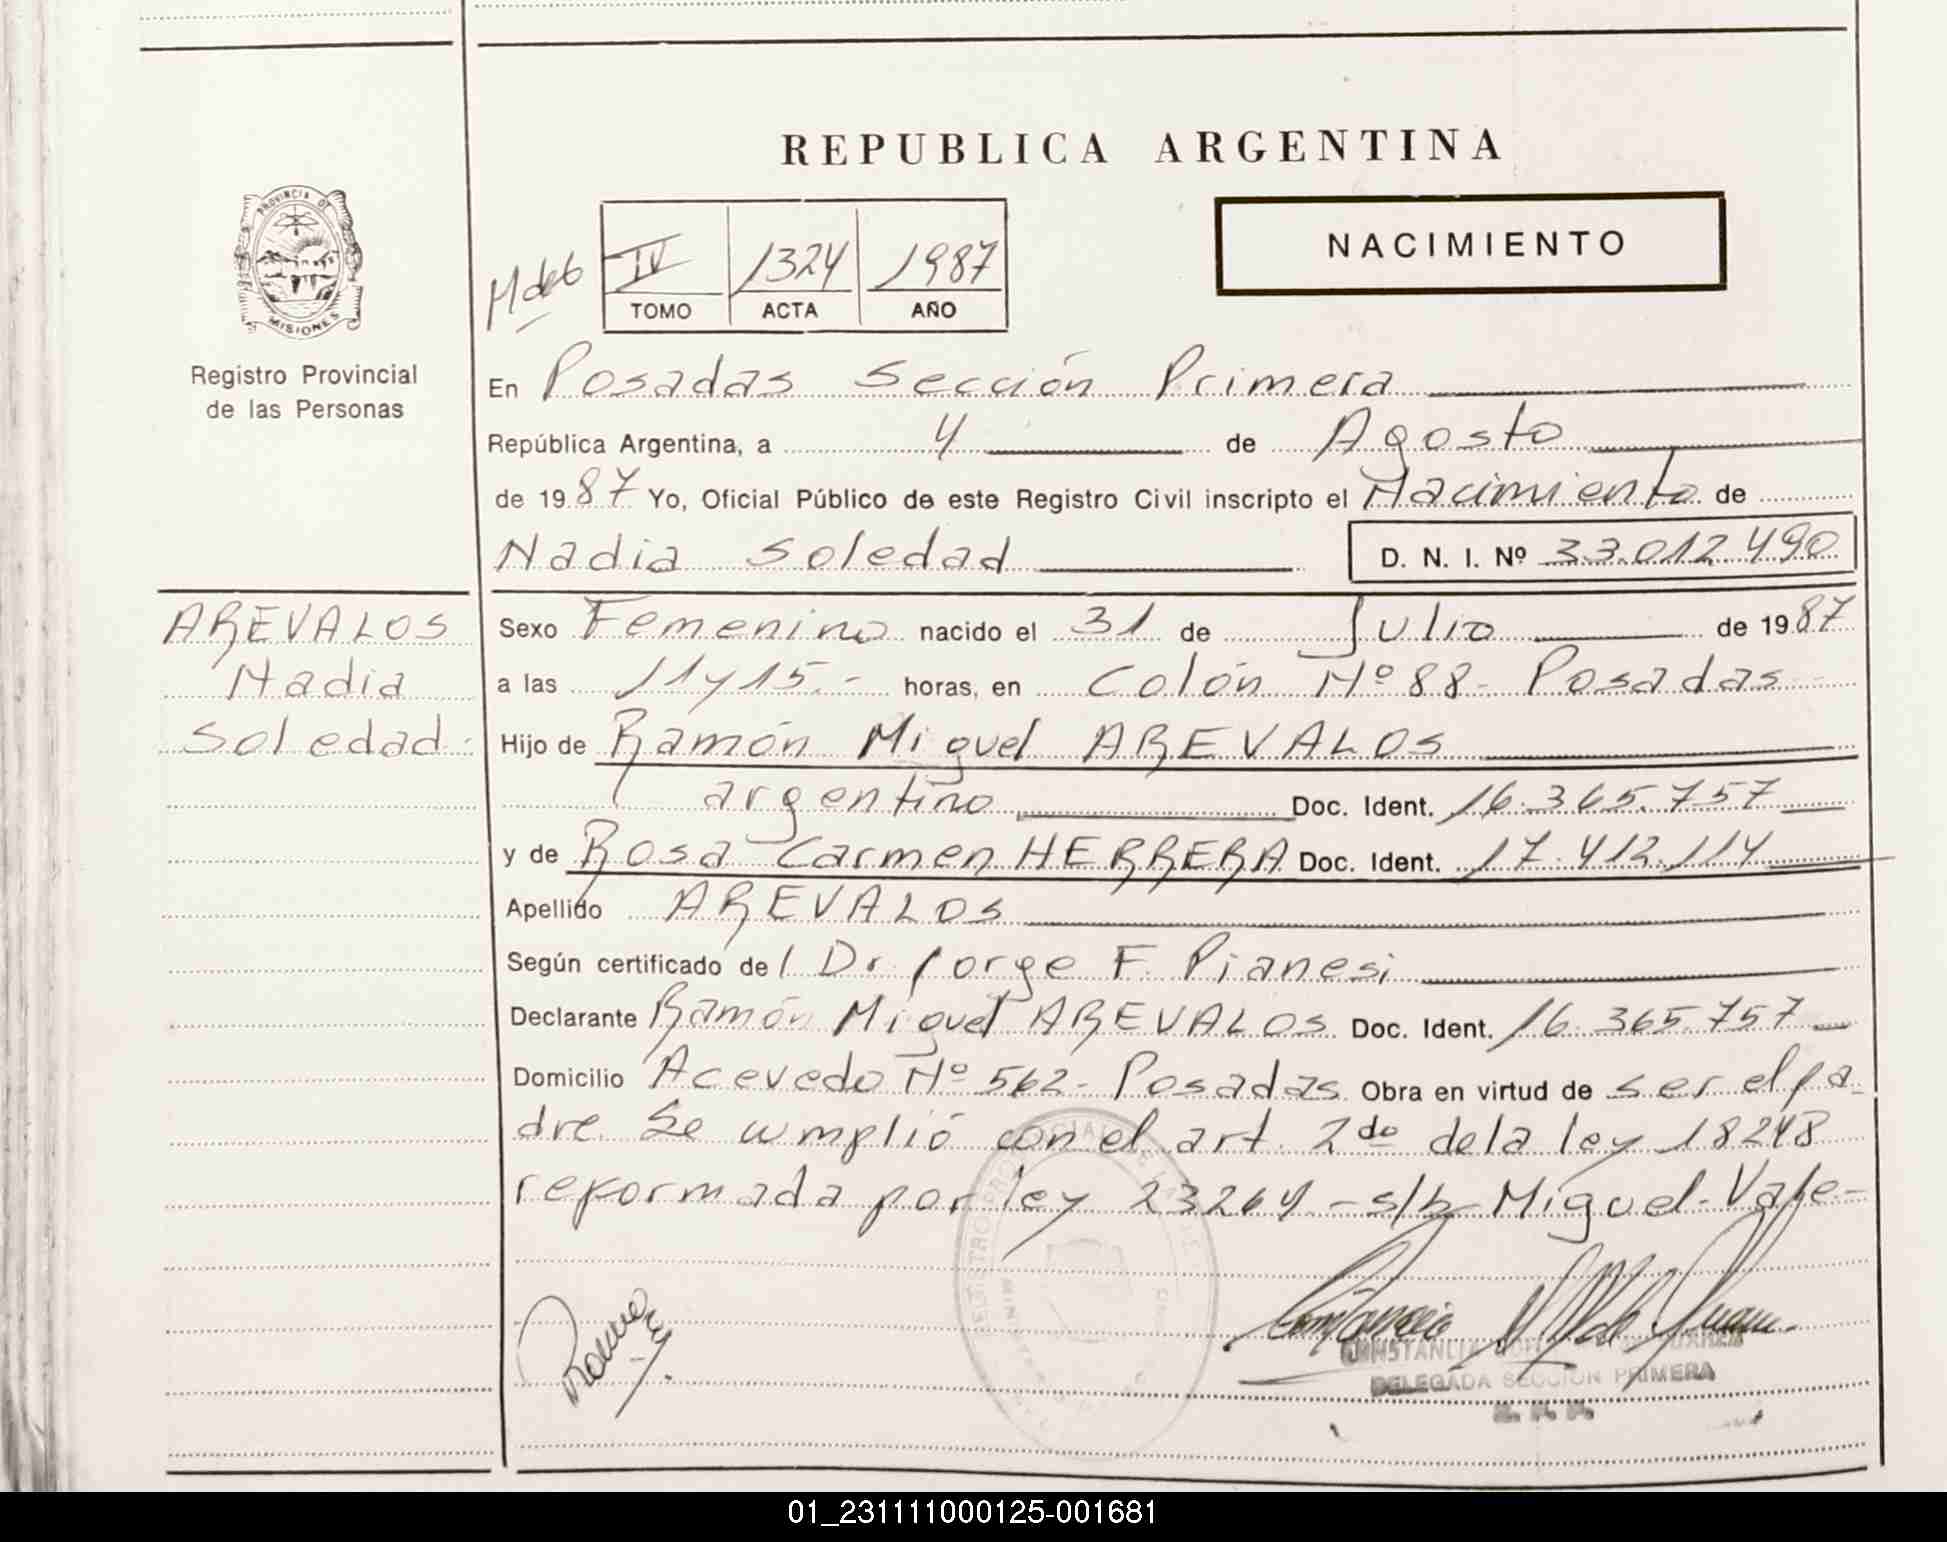 REPUBLICA ARGENTINA
PROVINCIA DE
MISIONES
Registro Provincial
de las Personas
NACIMIENTO
IV 1324 1987
TOMO ACTA AÑO
En Posadas Sección Primera
República Argentina, a 4 de Agosto
de 1987 Yo, Oficial Público de este Registro Civil inscripto el Nacimiento de
Nadia Soledad D. N. I. Nº 33.012.490
AREVALOS
Nadia
Soledad.
Sexo Femenino nacido el 31 de Julio de 1987
a las 11 y 15.- horas, en Colón Nº 88- Posadas-
Hijo de Ramón Miguel AREVALOS
argentino Doc. Ident. 16.365.757
y de Rosa Carmen HERRERA Doc. Ident. 17.412.114
Apellido AREVALOS
Según certificado del Dr. Jorge F. Pianesi
Declarante Ramón Miguel AREVALOS Doc. Ident. 16.365.757
Domicilio Acevedo Nº 562- Posadas Obra en virtud de ser el pa-
dre. Se cumplió con el art. 2do de la ley 18248
reformada por ley 23264 - s/b Miguel-Vale-
DELEGADA SECCION PRIMERA
01_231111000125-001681